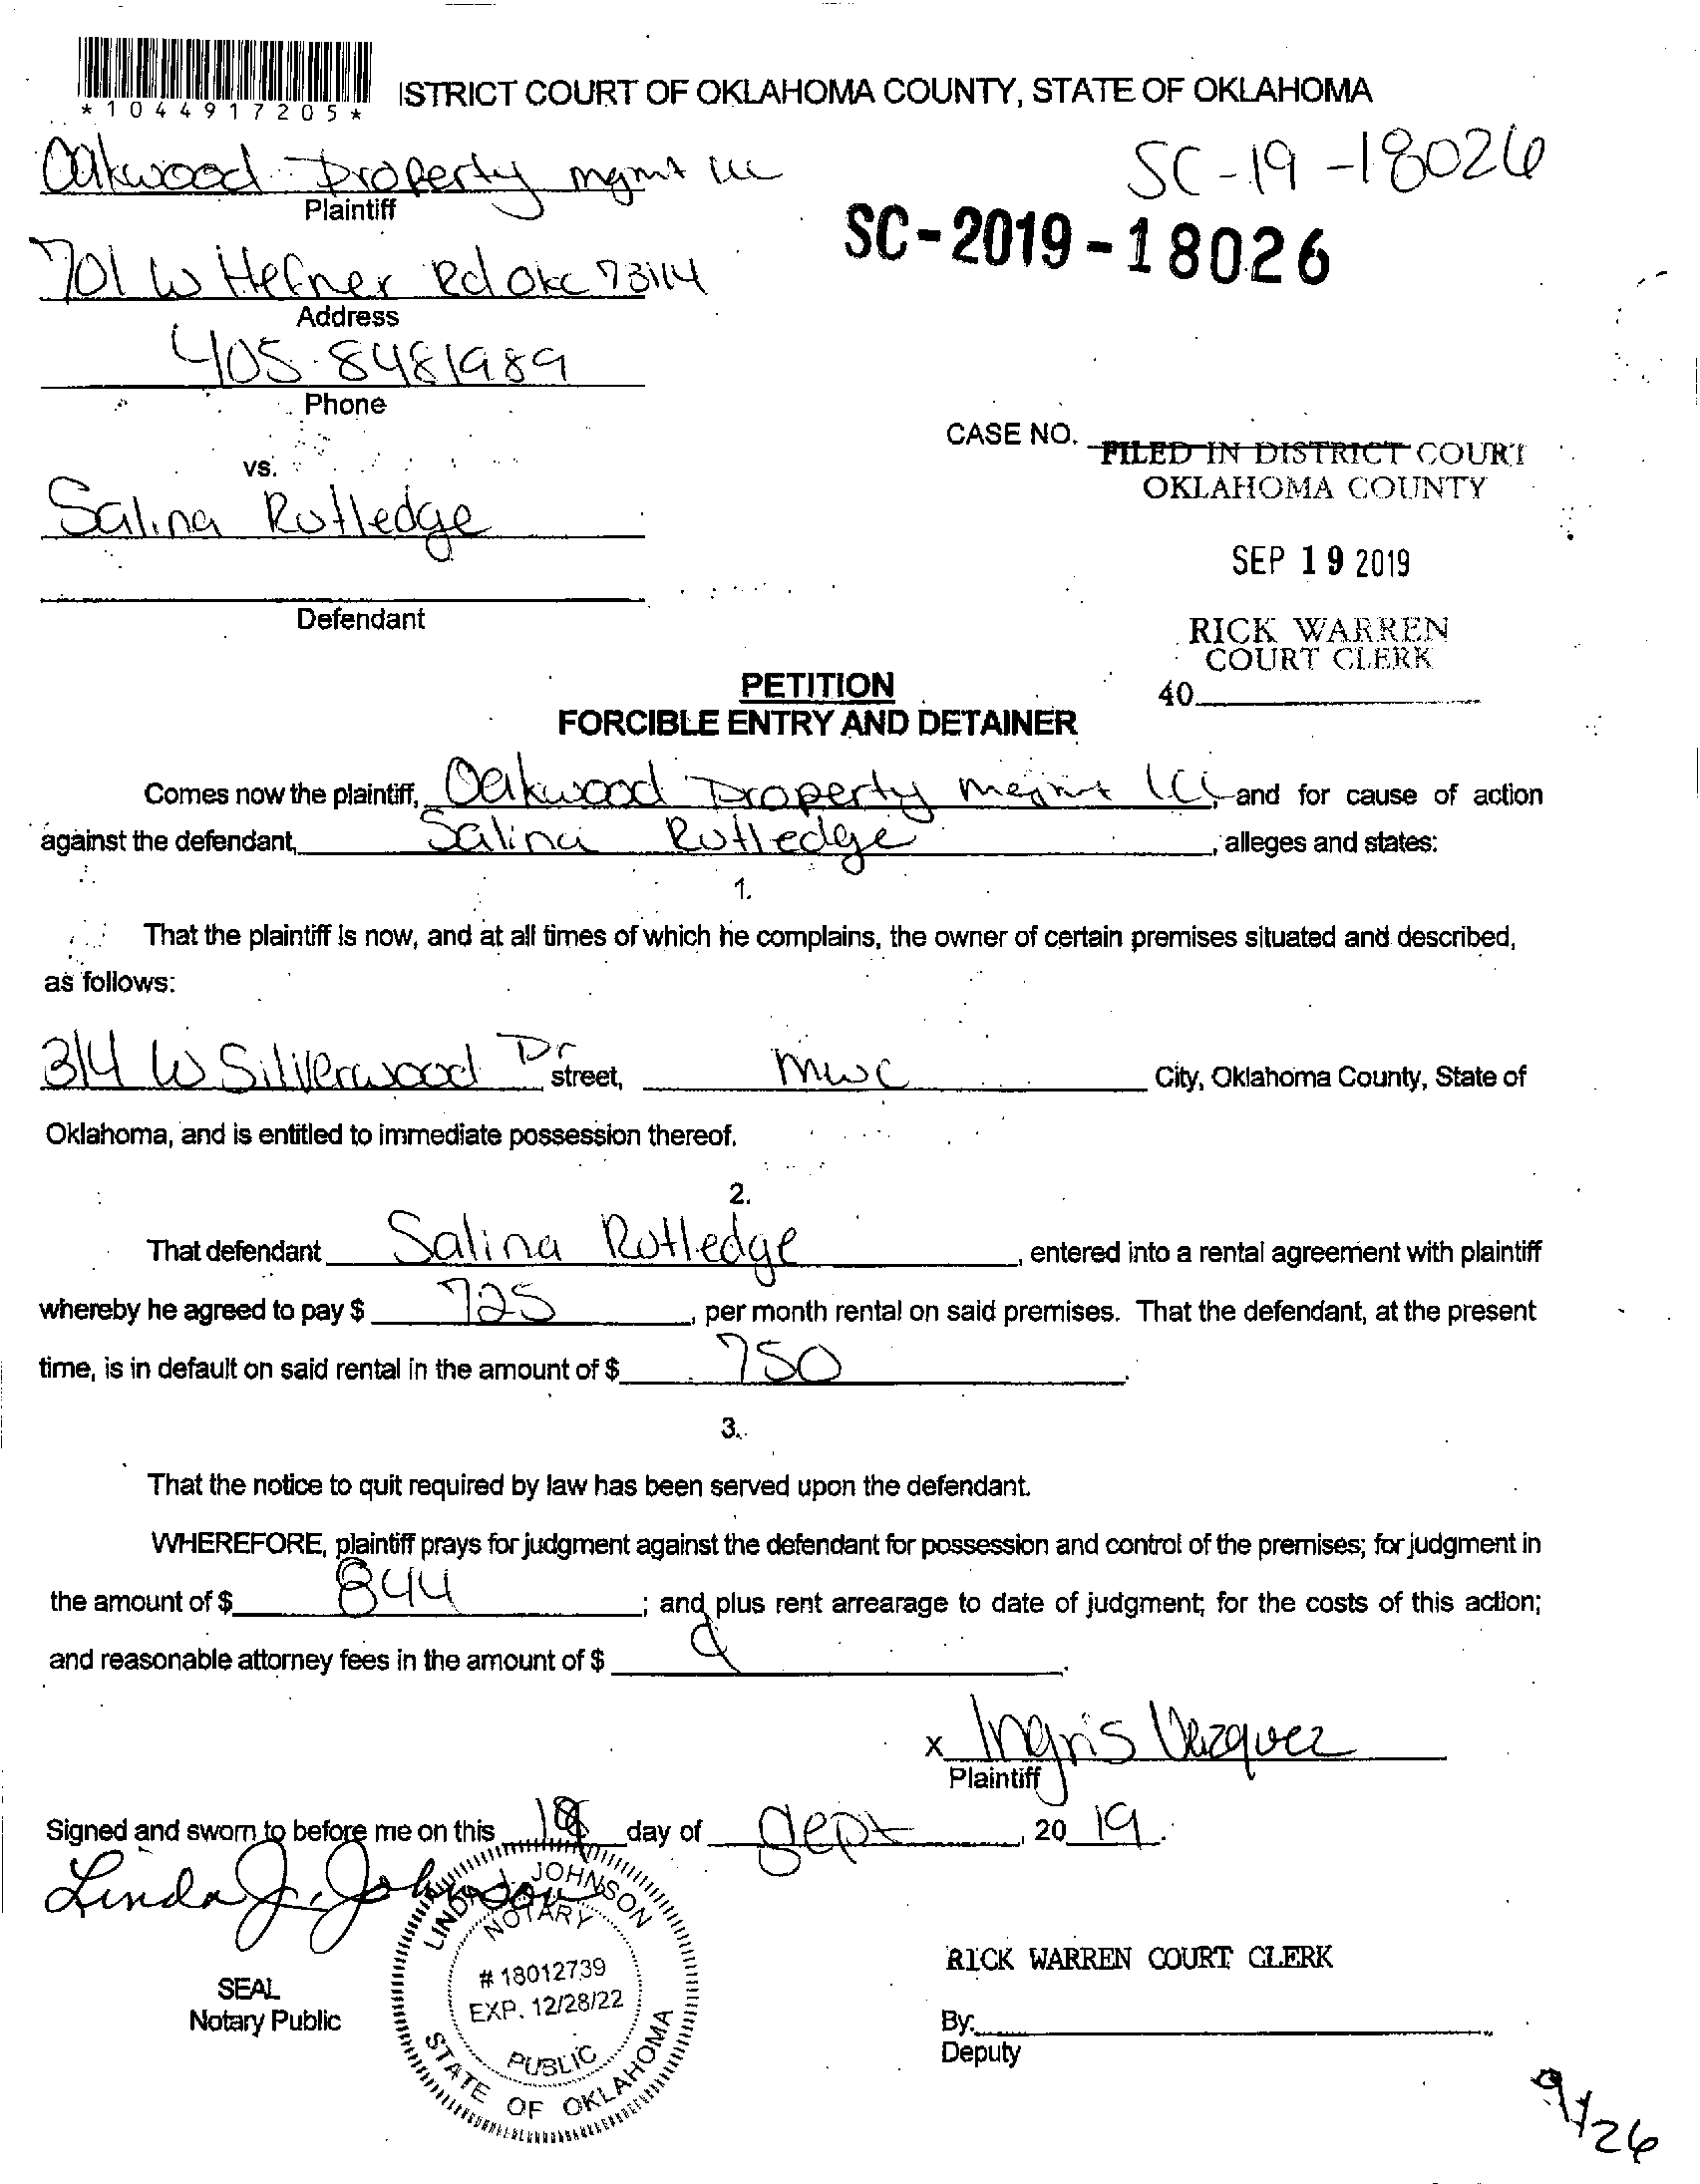 *1044917205*
ISTRICT COURT OF OKLAHOMA COUNTY, STATE OF OKLAHOMA
Oakwood Property mgmt llc
Plaintiff
SC-19-18026
SC-2019-18026
701 W Hefner Rd Okc 73114
Address
405-8481989
Phone
CASE NO.
FILED IN DISTRICT COURT
OKLAHOMA COUNTY
vs.
Salina Rutledge
SEP 19 2019
Defendant
RICK WARREN
COURT CLERK
40
PETITION
FORCIBLE ENTRY AND DETAINER
Comes now the plaintiff, Oakwood Property mgmt LLC, and for cause of action
against the defendant, Salina Rutledge, alleges and states:
1.
That the plaintiff is now, and at all times of which he complains, the owner of certain premises situated and described,
as follows:
314 W Silverwood Dr street, MWC City, Oklahoma County, State of
Oklahoma, and is entitled to immediate possession thereof.
2.
That defendant Salina Rutledge, entered into a rental agreement with plaintiff
whereby he agreed to pay $ 725, per month rental on said premises. That the defendant, at the present
time, is in default on said rental in the amount of $ 750.
3.
That the notice to quit required by law has been served upon the defendant.
WHEREFORE, plaintiff prays for judgment against the defendant for possession and control of the premises; for judgment in
the amount of $ 844; and plus rent arrearage to date of judgment; for the costs of this action;
and reasonable attorney fees in the amount of $
x Ingris Vazquez
Plaintiff
Signed and sworn to before me on this 18 day of Sept, 20 19.
Linda J. Johnson
LINDA J. JOHNSON
NOTARY
# 18012739
EXP. 12/28/22
PUBLIC
STATE OF OKLAHOMA
SEAL
Notary Public
RICK WARREN COURT CLERK
By:
Deputy
9/26